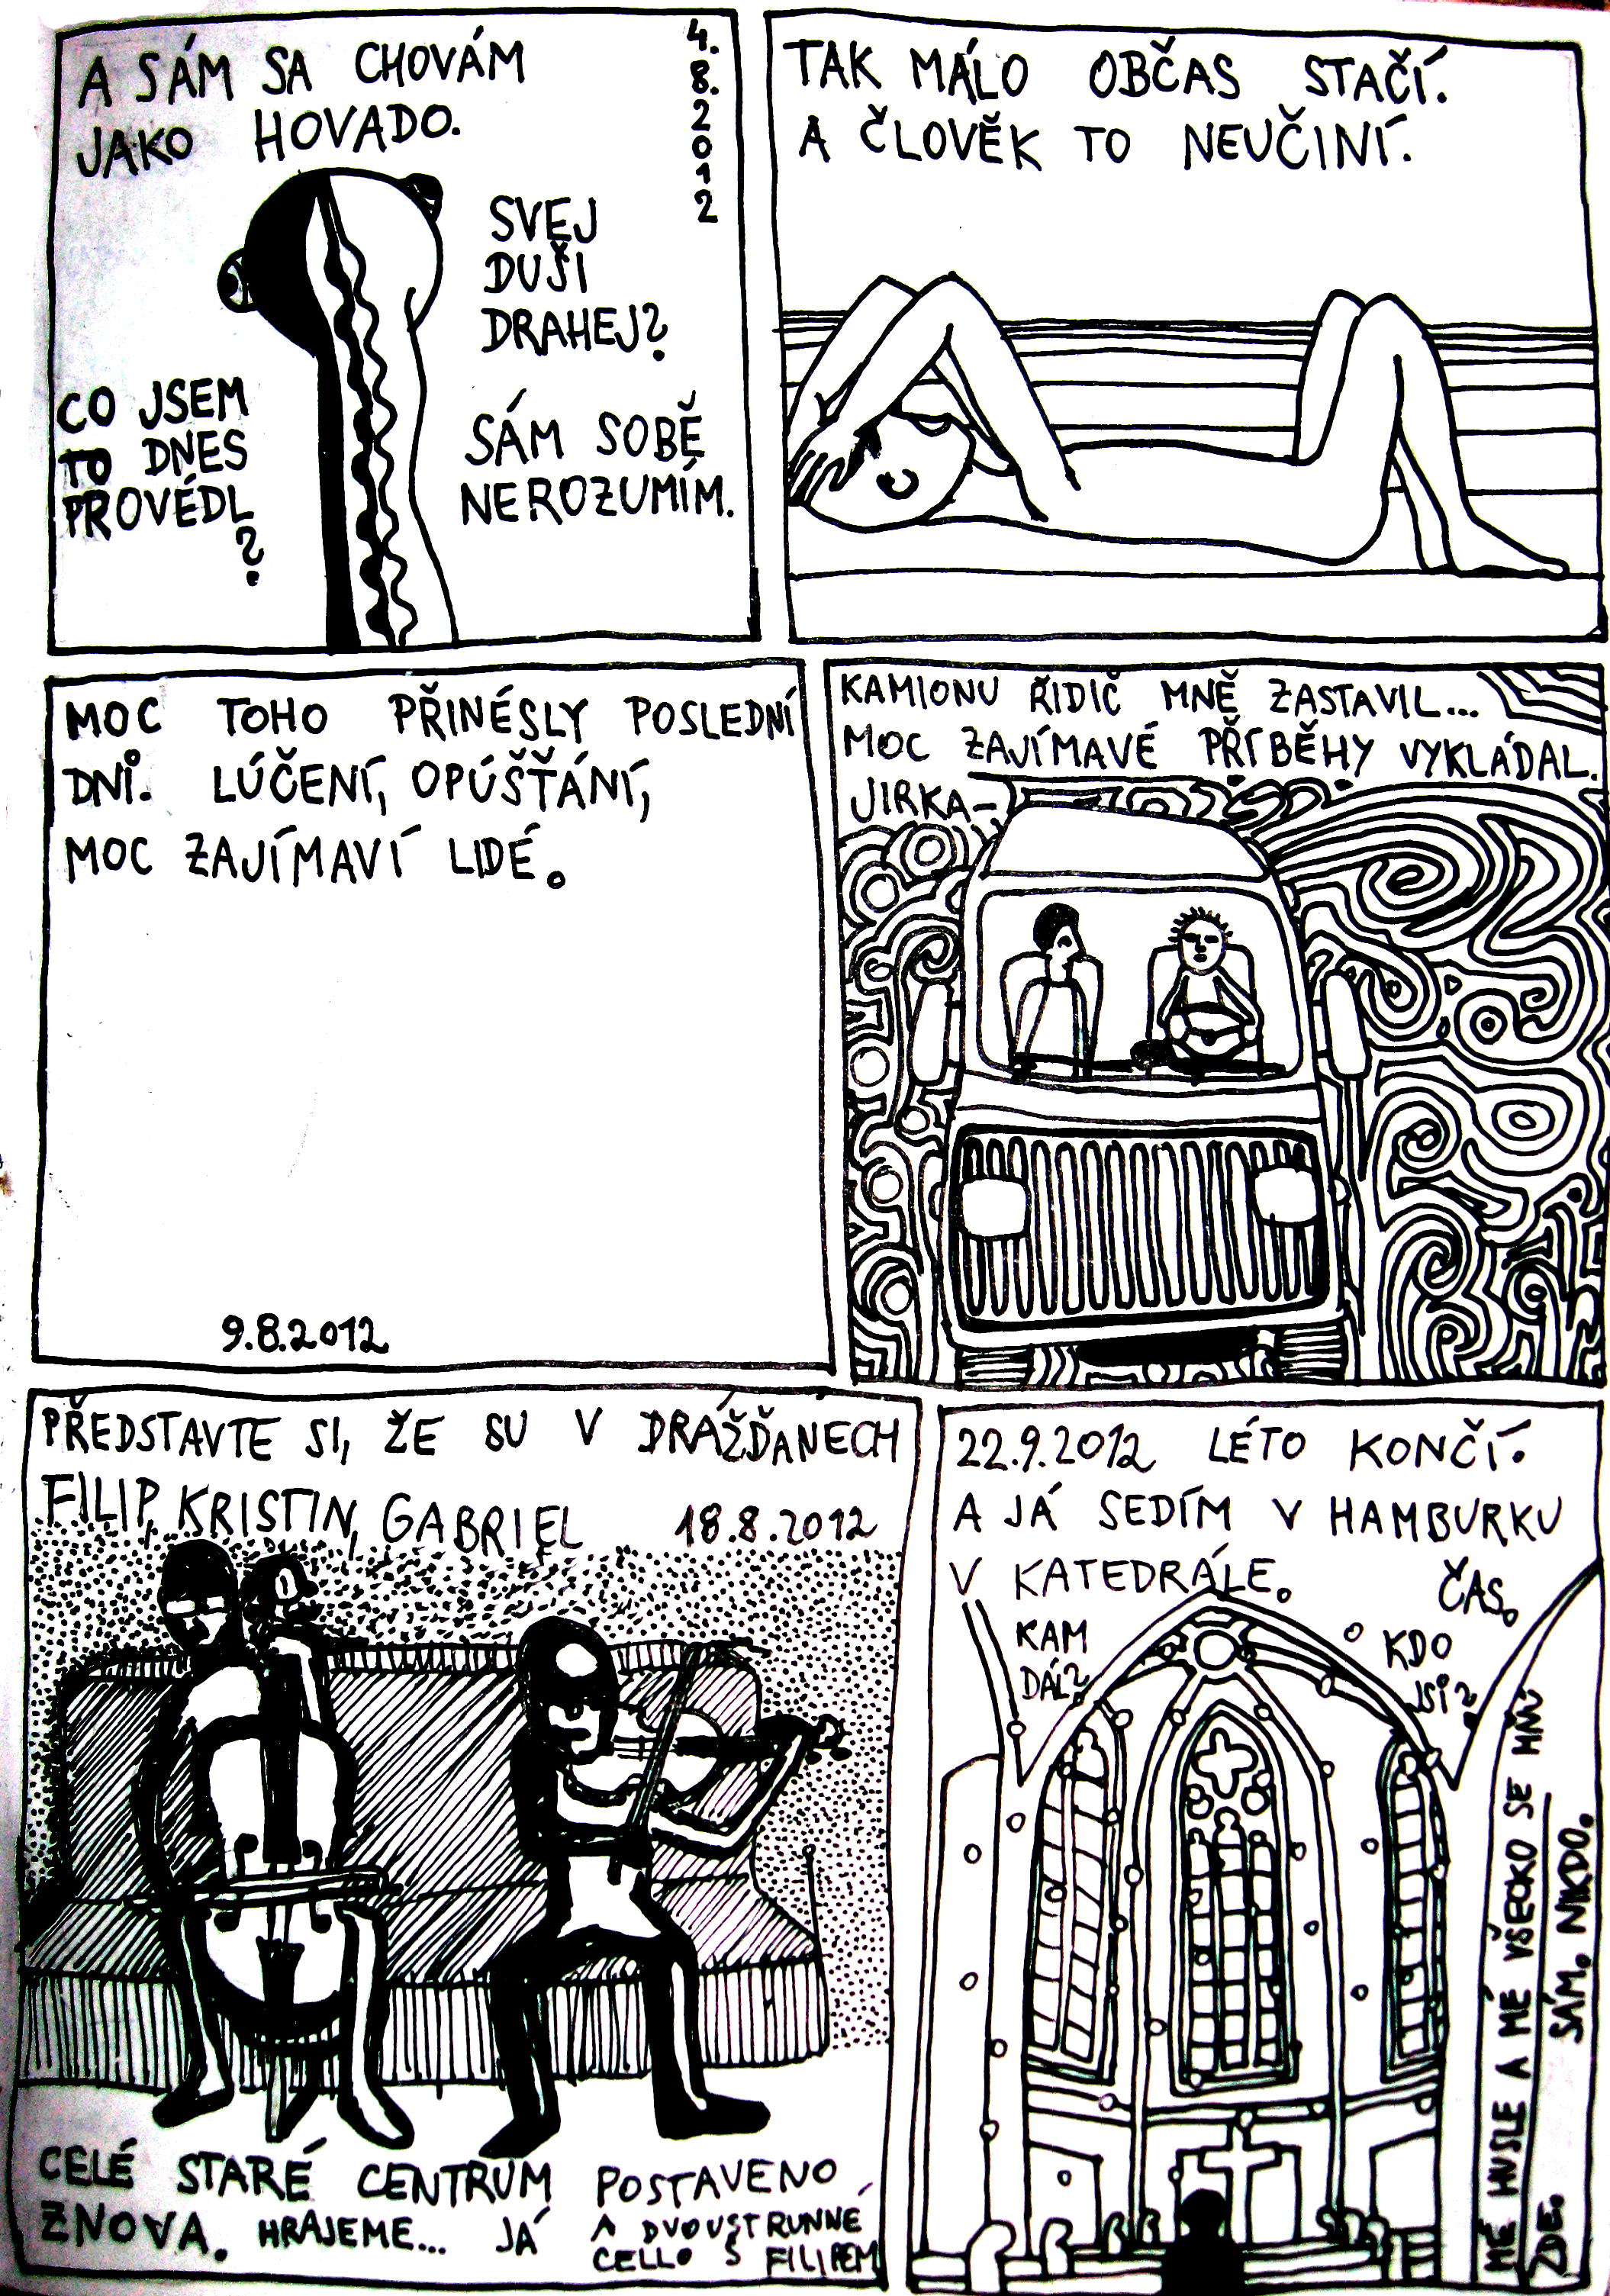 A SÁM SA CHOVÁM
JAKO HOVADO.
4.
8.
2
0
1
2
SVEJ
DUŠI
DRAHEJ?
CO JSEM
TO DNES
PROVÉDL
?
SÁM SOBĚ
NEROZUMÍM.
TAK MÁLO OBČAS STAČÍ.
A ČLOVĚK TO NEUČINÍ.
MOC TOHO PŘINÉSLY POSLEDNÍ
DNI. LÚČENÍ, OPÚŠŤÁNÍ,
MOC ZAJÍMAVÍ LIDÉ.
9.8.2012
KAMIONU ŘIDIČ MNĚ ZASTAVIL...
MOC ZAJÍMAVÉ PŘÍBĚHY VYKLÁDAL.
JIRKA-
PŘEDSTAVTE SI, ŽE SU V DRÁŽĎANECH
FILIP, KRISTIN, GABRIEL 18.8.2012
CELÉ STARÉ CENTRUM POSTAVENO
ZNOVA. HRAJEME... JÁ A DVOUSTRUNNÉ
CELLO S FILIPEM
22.9.2012 LÉTO KONČÍ.
A JÁ SEDÍM V HAMBURKU
V KATEDRÁLE. ČAS.
KAM
DÁL?
KDO
JSI?
MÉ HUSLE A MÉ VŠECKO SE MNÚ
ZDE. SÁM. NIKDO.